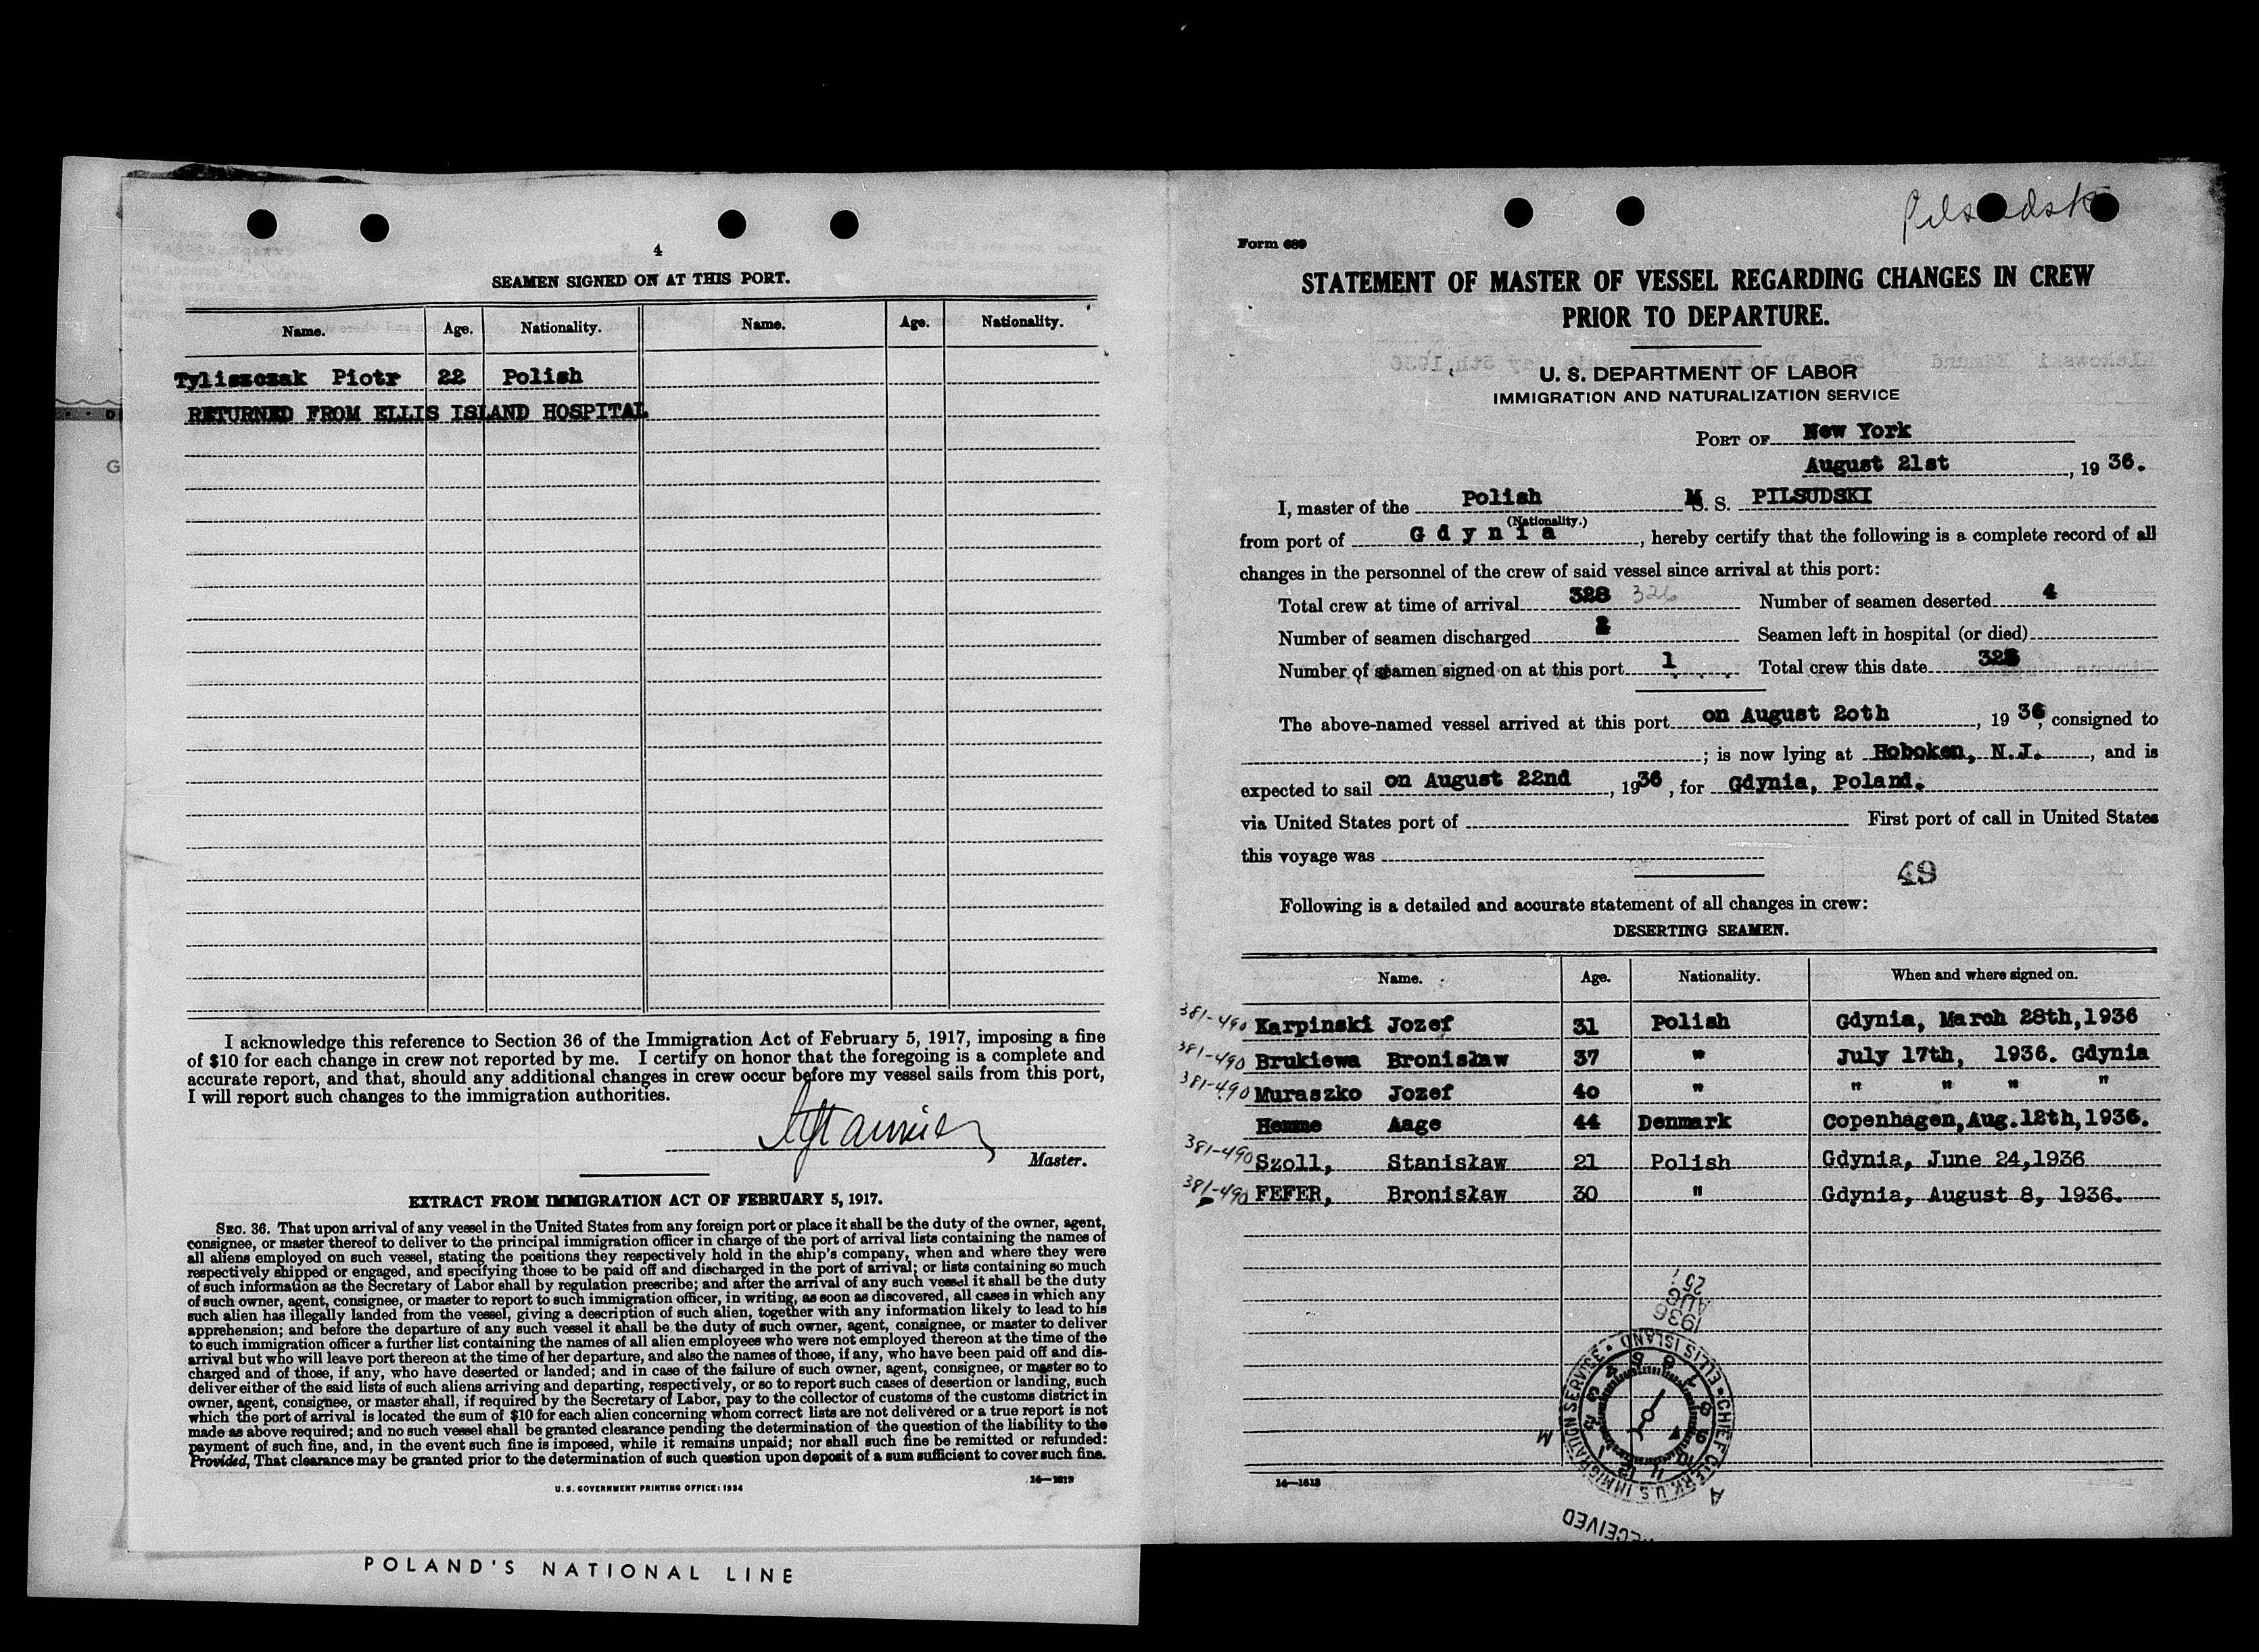 4
SEAMEN SIGNED ON AT THIS PORT.
Name. Age. Nationality. Name. Age. Nationality.
Tyliszczak Piotr 22 Polish
RETURNED FROM ELLIS ISLAND HOSPITAL
I acknowledge this reference to Section 36 of the Immigration Act of February 5, 1917, imposing a fine
of $10 for each change in crew not reported by me. I certify on honor that the foregoing is a complete and
accurate report, and that, should any additional changes in crew occur before my vessel sails from this port,
I will report such changes to the immigration authorities.
Master.
EXTRACT FROM IMMIGRATION ACT OF FEBRUARY 5, 1917.
SEC. 36. That upon arrival of any vessel in the United States from any foreign port or place it shall be the duty of the owner, agent,
consignee, or master thereof to deliver to the principal immigration officer in charge of the port of arrival lists containing the names of
all aliens employed on such vessel, stating the positions they respectively hold in the ship's company, when and where they were
respectively shipped or engaged, and specifying those to be paid off and discharged in the port of arrival; or lists containing so much
of such information as the Secretary of Labor shall by regulation prescribe; and after the arrival of any such vessel it shall be the duty
of such owner, agent, consignee, or master to report to such immigration officer, in writing, as soon as discovered, all cases in which any
such alien has illegally landed from the vessel, giving a description of such alien, together with any information likely to lead to his
apprehension; and before the departure of any such vessel it shall be the duty of such owner, agent, consignee, or master to deliver
to such immigration officer a further list containing the names of all alien employees who were not employed thereon at the time of the
arrival but who will leave port thereon at the time of her departure, and also the names of those, if any, who have been paid off and dis-
charged and of those, if any, who have deserted or landed; and in case of the failure of such owner, agent, consignee, or master so to
deliver either of the said lists of such aliens arriving and departing, respectively, or so to report such cases of desertion or landing, such
owner, agent, consignee, or master shall, if required by the Secretary of Labor, pay to the collector of customs of the customs district in
which the port of arrival is located the sum of $10 for each alien concerning whom correct lists are not delivered or a true report is not
made as above required; and no such vessel shall be granted clearance pending the determination of the question of the liability to the
payment of such fine, and, in the event such fine is imposed, while it remains unpaid; nor shall such fine be remitted or refunded:
Provided, That clearance may be granted prior to the determination of such question upon deposit of a sum sufficient to cover such fine.
14—1613
U. S. GOVERNMENT PRINTING OFFICE: 1934
POLAND'S NATIONAL LINE
Pilsudski
Form 689
STATEMENT OF MASTER OF VESSEL REGARDING CHANGES IN CREW
PRIOR TO DEPARTURE.
U. S. DEPARTMENT OF LABOR
IMMIGRATION AND NATURALIZATION SERVICE
PORT OF New York
August 21st, 19 36.
I, master of the Polish M. S. PILSUDSKI
(Nationality.)
from port of Gdynia, hereby certify that the following is a complete record of all
changes in the personnel of the crew of said vessel since arrival at this port:
Total crew at time of arrival 328 326 Number of seamen deserted 4
Number of seamen discharged 2 Seamen left in hospital (or died)
Number of seamen signed on at this port 1 Total crew this date
The above-named vessel arrived at this port on August 20th, 19 36, consigned to
; is now lying at Hoboken, N.J., and is
expected to sail on August 22nd, 1936, for Gdynia, Poland.
via United States port of First port of call in United States
this voyage was
49
Following is a detailed and accurate statement of all changes in crew:
DESERTING SEAMEN.
Name. Age. Nationality. When and where signed on.
381-490 Karpinski Jozef 31 Polish Gdynia, March 28th, 1936
381-490 Brukiewa Bronisław 37 " July 17th, 1936. Gdynia
381-490 Muraszko Jozef 40 " " " " "
Hemme Aage 44 Denmark Copenhagen, Aug. 12th, 1936.
381-490 Szoll, Stanisław 21 Polish Gdynia, June 24, 1936
381-490 FEFER, Bronisław 30 " Gdynia, August 8, 1936.
1936 AUG 25
CHIEF CLERK U.S. IMMIGRATION SERVICE • ELLIS ISLAND
M
A
RECEIVED
14—1613